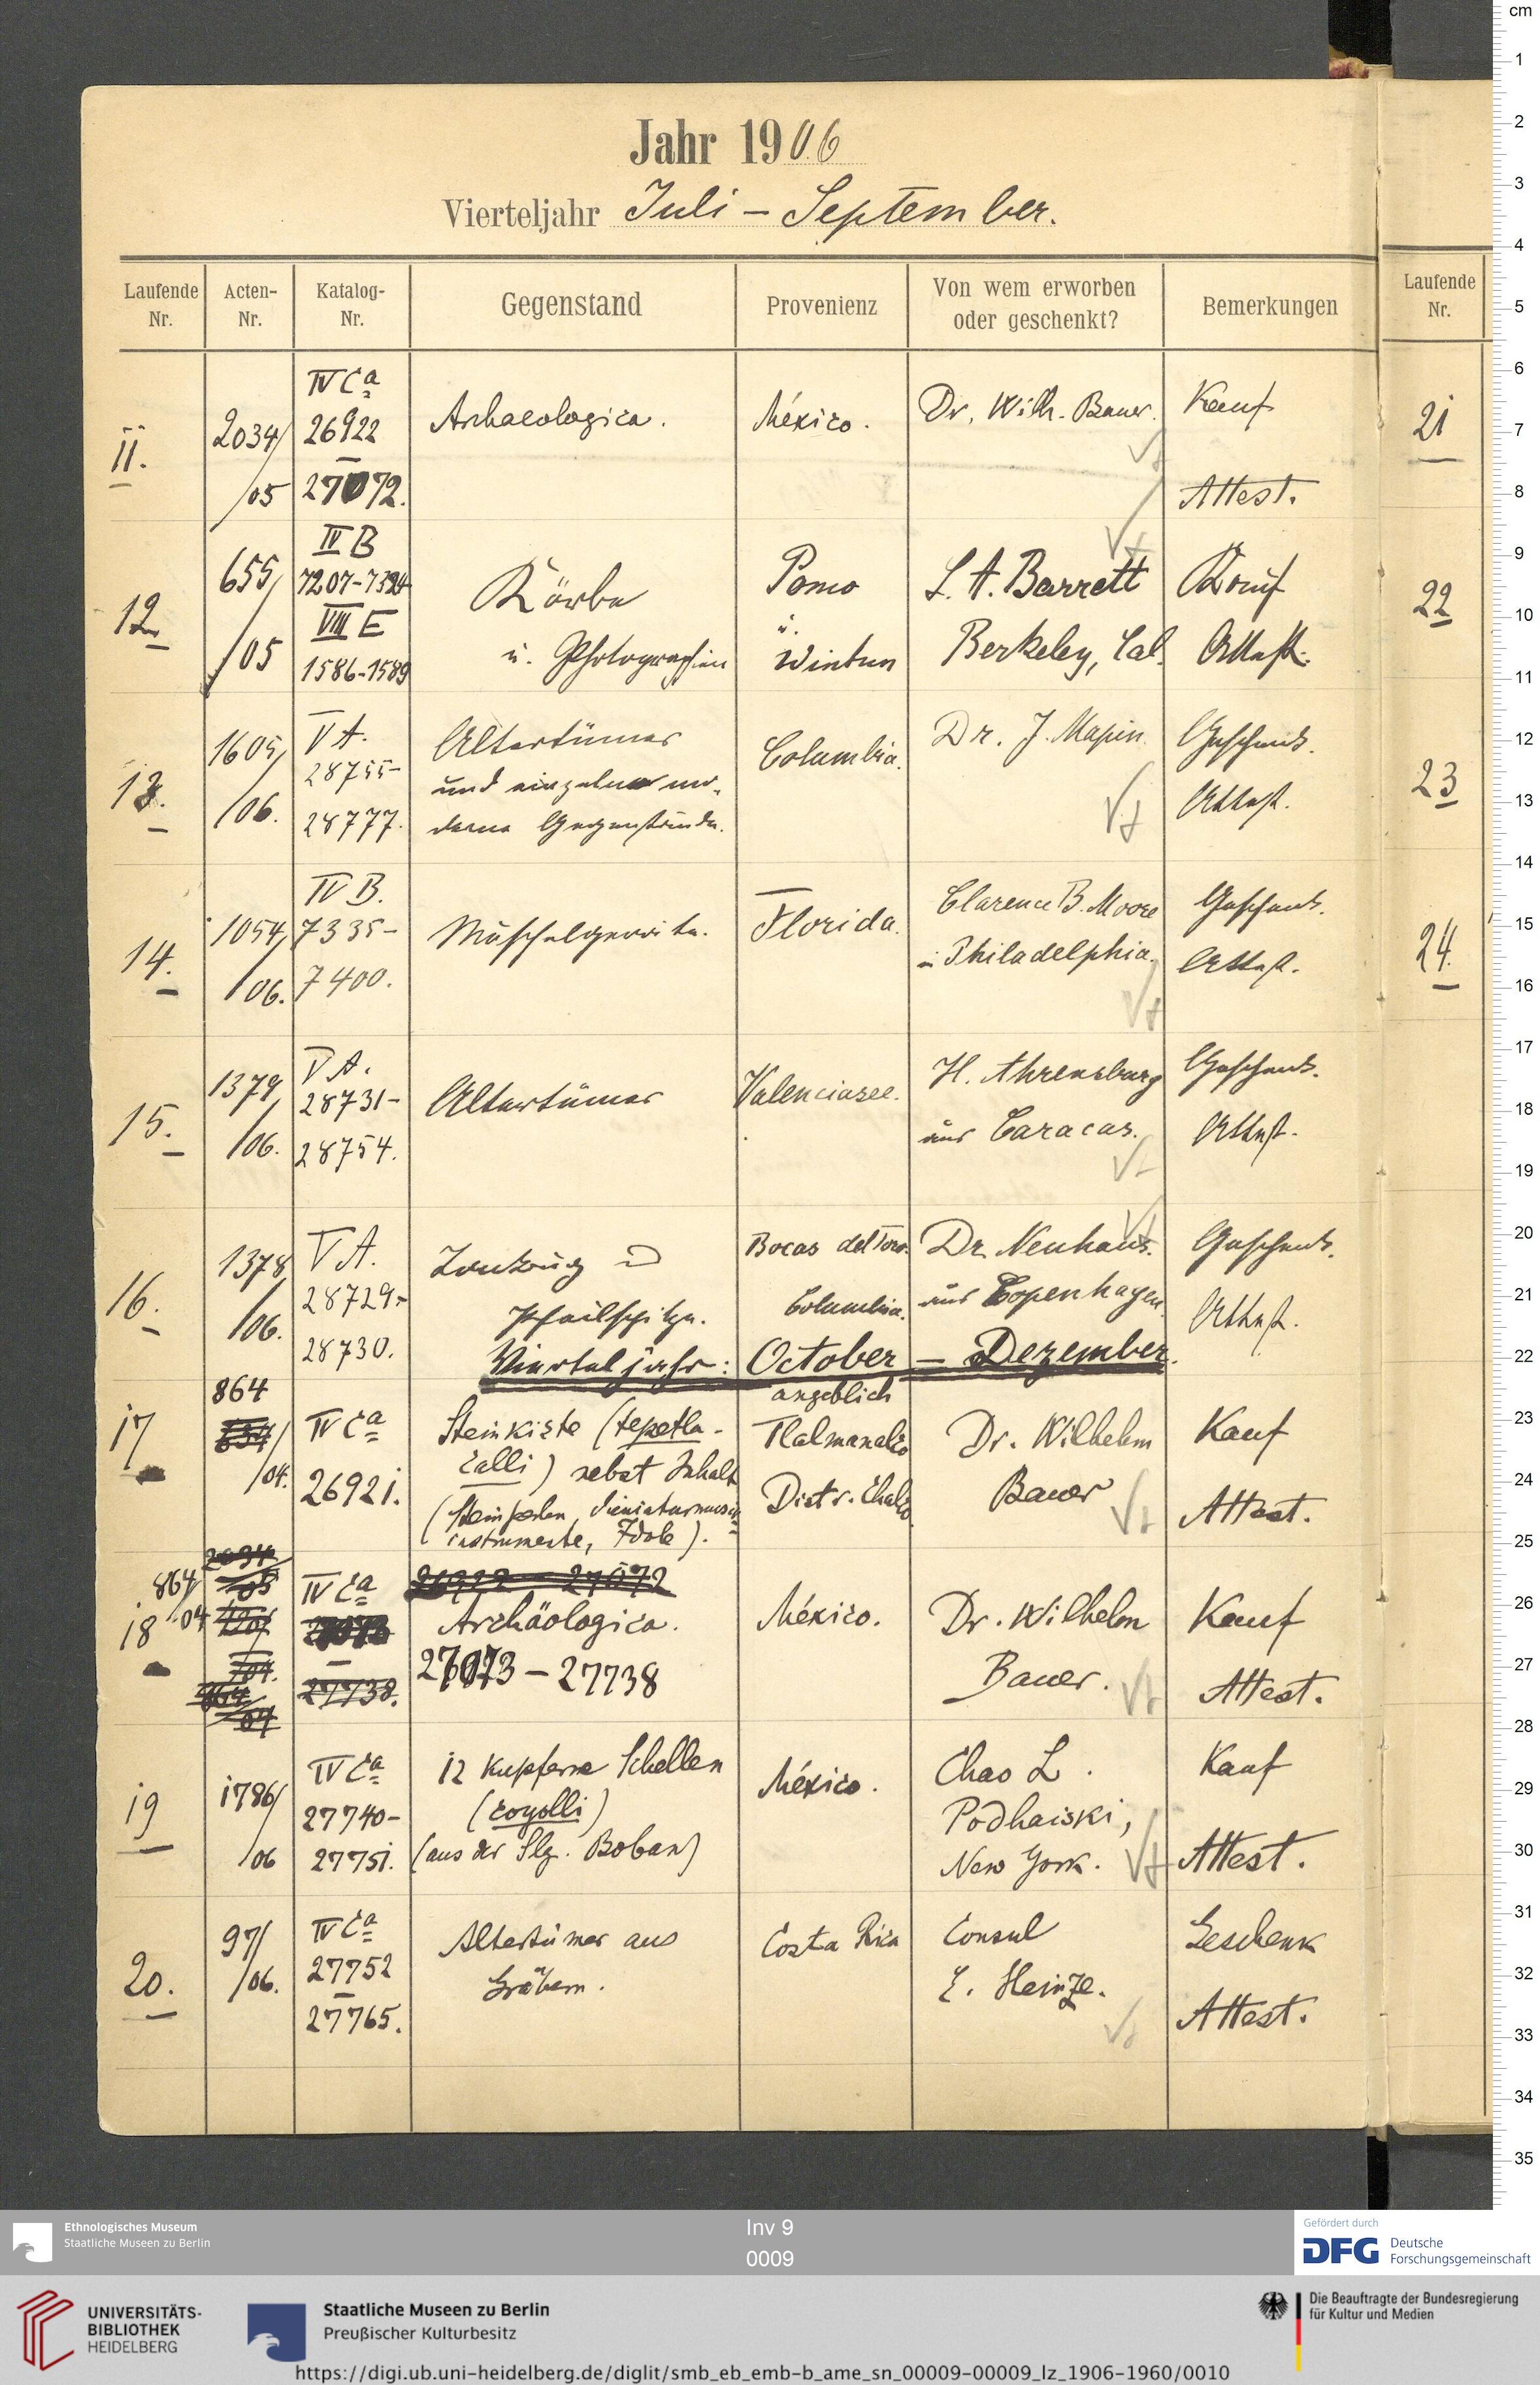 Jahr 1906
Vierteljahr Juli – September.
Laufende Nr.
Acten-Nr.
Katalog-Nr.
Gegenstand
Provenienz
Von wem erworben oder geschenkt?
Bemerkungen
Laufende Nr.
11.
2034/
/05
IV Ca
26922
–
27072.
Archaeologica.
México.
Dr. Wilh. Bauer.
Kauf
Attest.
21
12
655/
/05
IV B
7207-7324
VIII E
1586-1589
Körbe
u. Photographien
Pomo
u.
Wintun
S. A. Barrett
Berkeley, Cal.
Kauf
Attest.
22
13.
1605/
/06.
V A.
28755-
28777.
Altertümer
und einzelne mo-
derne Gegenstände.
Columbia.
Dr. J.
Geschenk.
Attest.
23
14.
1054/
/06.
IV B.
7335-
7400.
Muschelgeräte.
Florida.
Clarence B. Moore
in Philadelphia.
Geschenk.
Attest.
24.
15.
1379/
/06.
V A.
28731-
28754.
Altertümer
Valenciasee.
H. Ahrensburg
aus Caracas.
Geschenk.
Attest.
16.
1378/
/06.
V A.
28729-
28730.
Pfeilspitze.
Bocas del Toro.
Columbia.
Dr. Neuhaus.
aus Copenhagen.
Geschenk.
Attest.
Vierteljahr: October – Dezember.
17
864
/04.
IV Ca
26921.
Steinkiste (tepetla-
calli) nebst Inhalt
(Steinperlen, Miniaturmusik=
instrumente, Idole).
angeblich
Tlalmanalco
Distr. Chalco
Dr. Wilhelm
Bauer
Kauf
Attest.
18
864/
04
IV Ca
27738.
26922 – 27072
Archäologica.
27073 – 27738
México.
Dr. Wilhelm
Bauer.
Kauf
Attest.
19
1786/
/06
IV Ca
27740-
27751.
12 kupferne Schellen
(coyolli)
(aus der Slg. Boban)
México.
Chas L.
Podhaiski,
New York.
Kauf
Attest.
20.
97/
/06.
IV Ca
27752
–
27765.
Altertümer aus
Gräbern.
Costa Rica
Consul
E. Heinze.
Geschenk
Attest.
cm
1
2
3
4
5
6
7
8
9
10
11
12
13
14
15
16
17
18
19
20
21
22
23
24
25
26
27
28
29
30
31
32
33
34
35
Ethnologisches Museum
Staatliche Museen zu Berlin
Inv 9
0009
Gefördert durch
DFG Deutsche
Forschungsgemeinschaft
UNIVERSITÄTS-
BIBLIOTHEK
HEIDELBERG
Staatliche Museen zu Berlin
Preußischer Kulturbesitz
Die Beauftragte der Bundesregierung
für Kultur und Medien
https://digi.ub.uni-heidelberg.de/diglit/smb_eb_emb-b_ame_sn_00009-00009_lz_1906-1960/0010